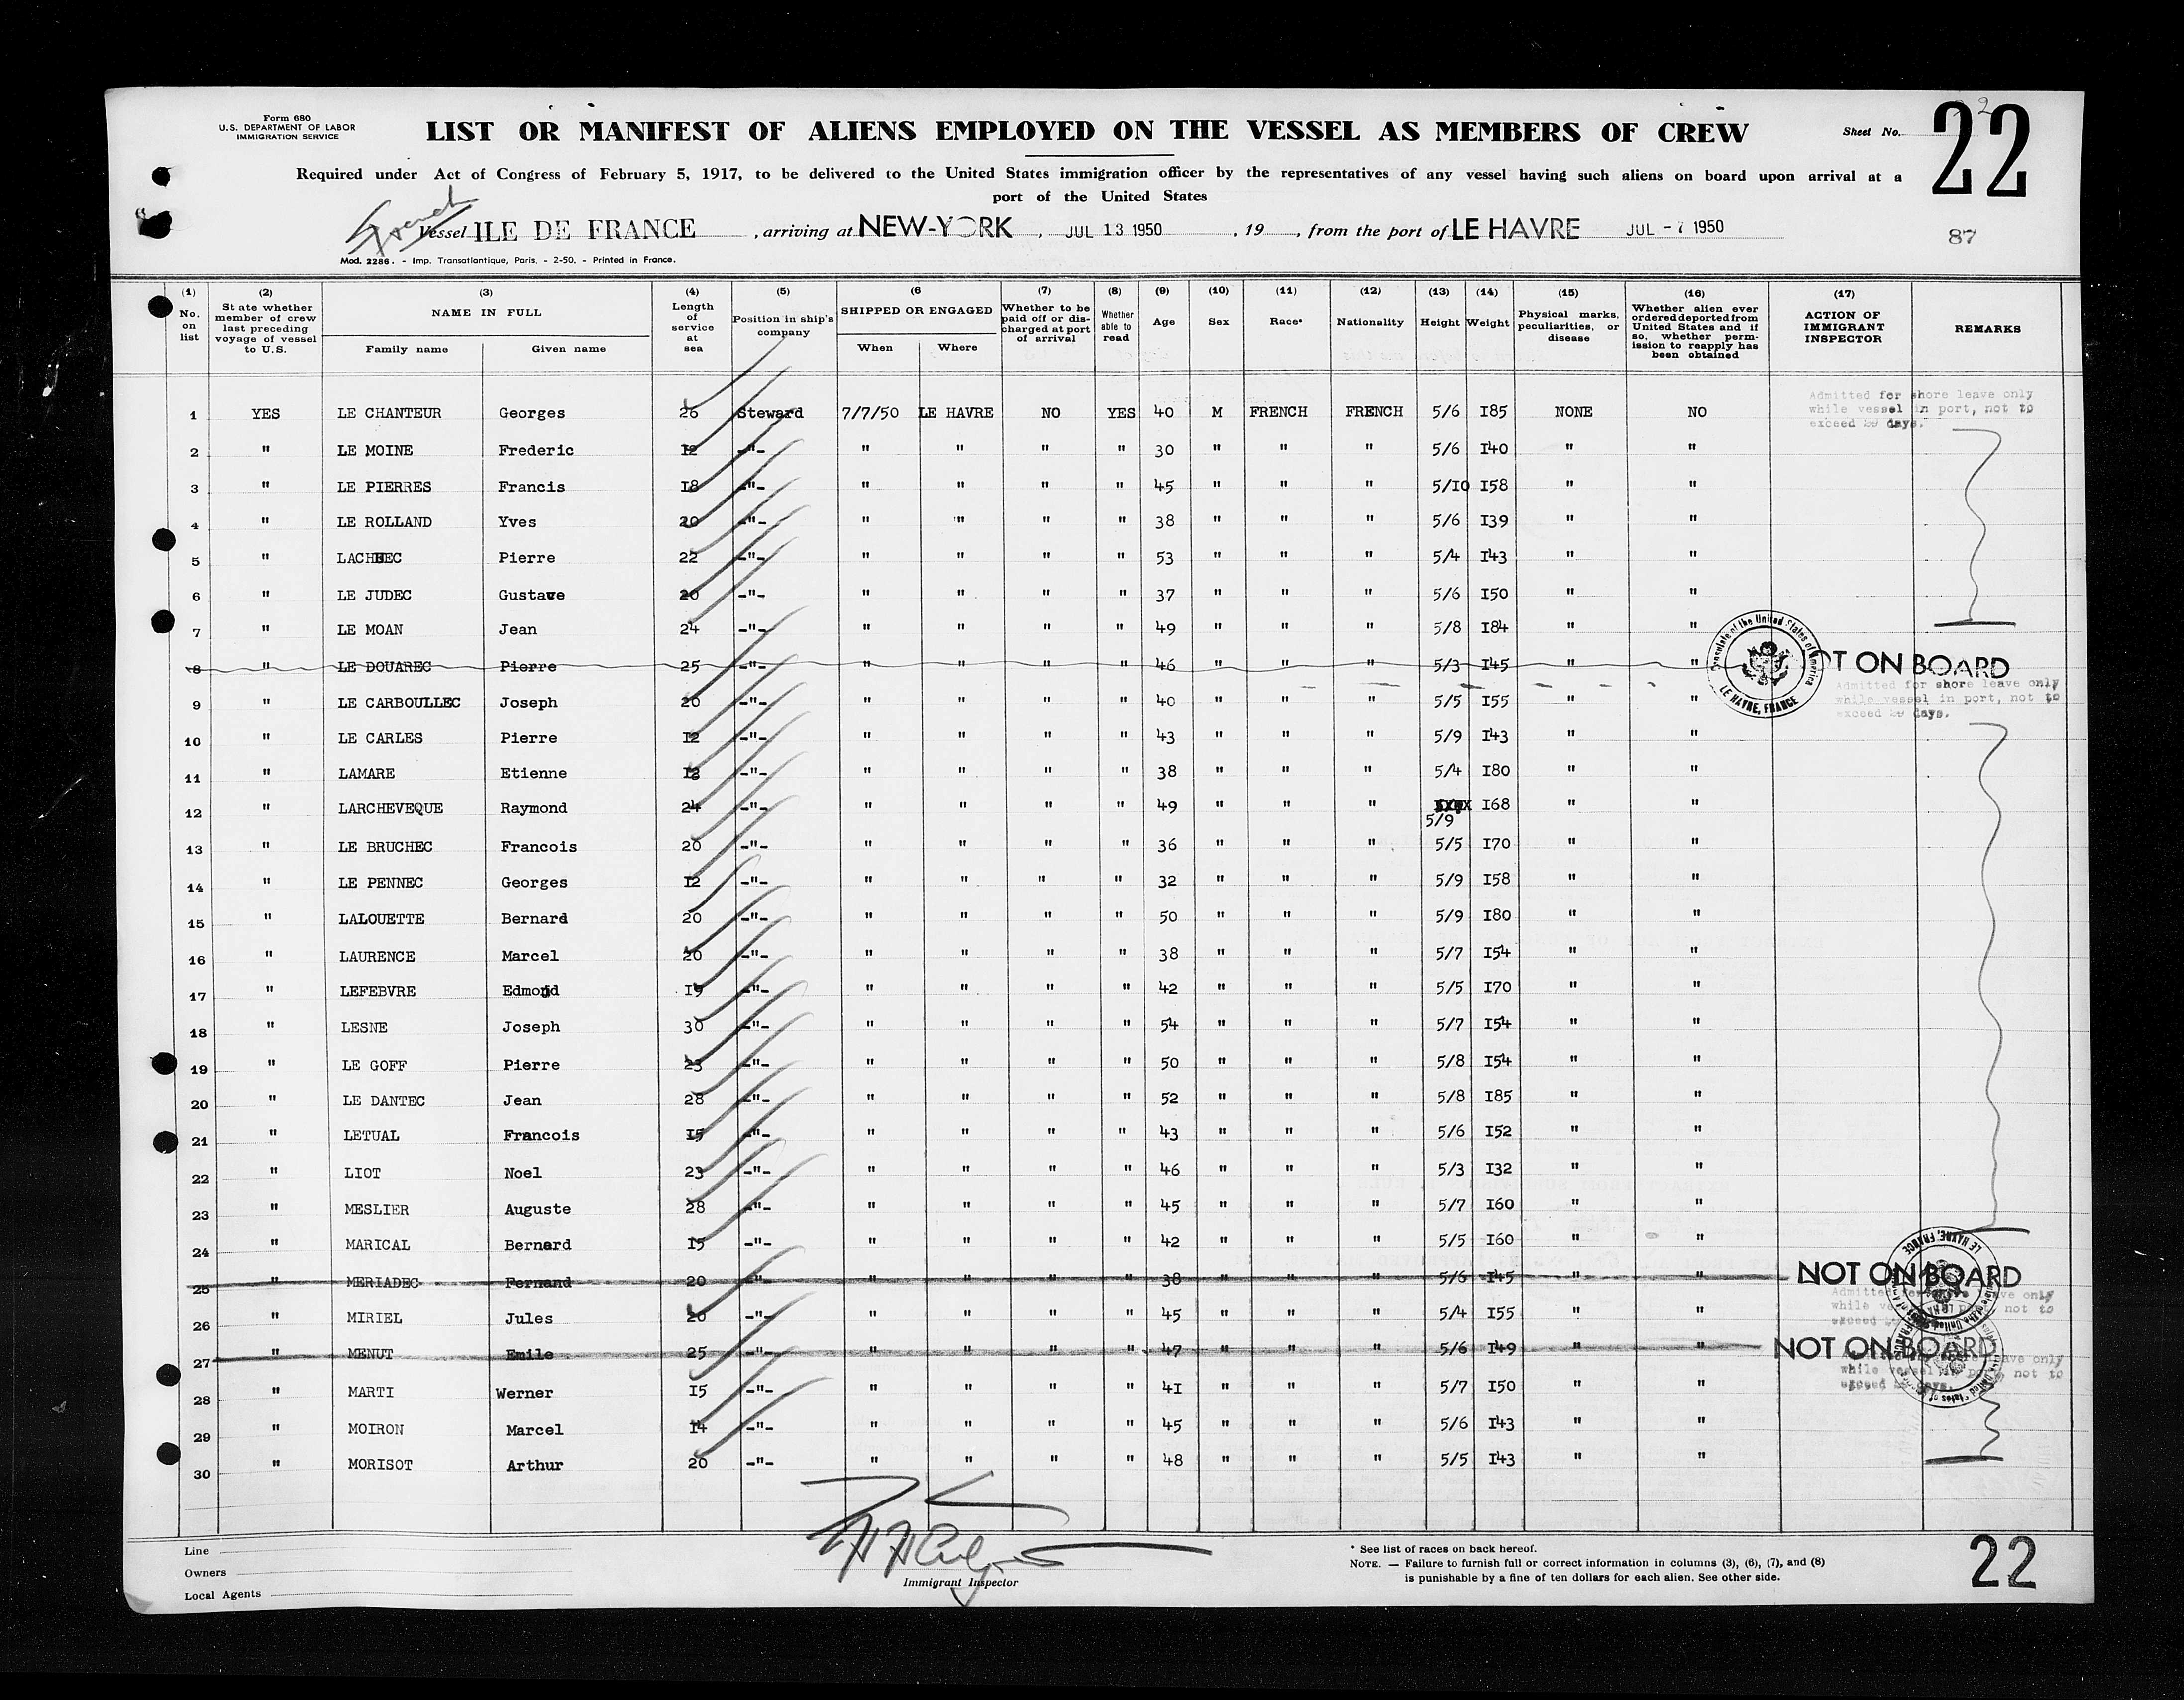 Form 680
U.S. DEPARTMENT OF LABOR
IMMIGRATION SERVICE
LIST OR MANIFEST OF ALIENS EMPLOYED ON THE VESSEL AS MEMBERS OF CREW
Sheet No. 22
Required under Act of Congress of February 5, 1917, to be delivered to the United States immigration officer by the representatives of any vessel having such aliens on board upon arrival at a
port of the United States
French
Vessel ILE DE FRANCE , arriving at NEW-YORK , JUL 13 1950 , 19 , from the port of LE HAVRE JUL - 7 1950
87
Mod. 2286. - Imp. Transatlantique, Paris. - 2-50. - Printed in France.
(1) No. on list
(2) State whether member of crew last preceding voyage of vessel to U.S.
(3) NAME IN FULL Family name Given name
(4) Length of service at sea
(5) Position in ship's company
(6 SHIPPED OR ENGAGED When Where
(7) Whether to be paid off or discharged at port of arrival
(8) Whether able to read
(9) Age
(10) Sex
(11) Race*
(12) Nationality
(13) Height
(14) Weight
(15) Physical marks, peculiarities, or disease
(16) Whether alien ever ordered deported from United States and if so, whether permission to reapply has been obtained
(17) ACTION OF IMMIGRANT INSPECTOR
REMARKS
1 YES LE CHANTEUR Georges 26 Steward 7/7/50 LE HAVRE NO YES 40 M FRENCH FRENCH 5/6 I85 NONE NO Admitted for shore leave only while vessel in port, not to exceed 29 days.
2 " LE MOINE Frederic I2 -"- " " " " 30 " " " 5/6 I40 " "
3 " LE PIERRES Francis I8 -"- " " " " 45 " " " 5/I0 I58 " "
4 " LE ROLLAND Yves 20 -"- " " " " 38 " " " 5/6 I39 " "
5 " Pierre 22 -"- " " " " 53 " " " 5/4 I43 " "
6 " LE JUDEC Gustave 20 -"- " " " " 37 " " " 5/6 I50 " "
7 " LE MOAN Jean 24 -"- " " " " 49 " " " 5/8 I84 " "
8 " LE DOUAREC Pierre 25 -"- " " " " 46 " " " 5/3 I45 " " T ON BOARD
Consulate of the United States of America LE HAVRE, FRANCE
9 " LE CARBOULLEC Joseph 20 -"- " " " " 40 " " " 5/5 I55 " " Admitted for shore leave only while vessel in port, not to exceed 29 days.
10 " LE CARLES Pierre I2 -"- " " " " 43 " " " 5/9 I43 " "
11 " LAMARE Etienne -"- " " " " 38 " " " 5/4 I80 " "
12 " LARCHEVEQUE Raymond 24 -"- " " " " 49 " " " 5/9 I68 " "
13 " LE BRUCHEC Francois 20 -"- " " " " 36 " " " 5/5 I70 " "
14 " LE PENNEC Georges I2 -"- " " " " 32 " " " 5/9 I58 " "
15 " LALOUETTE Bernard 20 -"- " " " " 50 " " " 5/9 I80 " "
16 " LAURENCE Marcel 20 -"- " " " " 38 " " " 5/7 I54 " "
17 " LEFEBVRE Edmond I9 -"- " " " " 42 " " " 5/5 I70 " "
18 " LESNE Joseph 30 -"- " " " " 54 " " " 5/7 I54 " "
19 " LE GOFF Pierre 23 -"- " " " " 50 " " " 5/8 I54 " "
20 " LE DANTEC Jean 28 -"- " " " " 52 " " " 5/8 I85 " "
21 " LETUAL Francois I5 -"- " " " " 43 " " " 5/6 I52 " "
22 " LIOT Noel 23 -"- " " " " 46 " " " 5/3 I32 " "
23 " MESLIER Auguste 28 -"- " " " " 45 " " " 5/7 I60 " "
24 " MARICAL Bernard I5 -"- " " " " 42 " " " 5/5 I60 " "
25 " MERIADEC Fernand 20 -"- " " " " 38 " " " 5/6 I45 " " NOT ON BOARD
26 " MIRIEL Jules 20 -"- " " " " 45 " " " 5/4 I55 " "
27 " MENUT Emile 25 -"- " " " " 47 " " " 5/6 I49 " " NOT ON BOARD
28 " MARTI Werner I5 -"- " " " " 4I " " " 5/7 I50 " "
29 " MOIRON Marcel I4 -"- " " " " 45 " " " 5/6 I43 " "
30 " MORISOT Arthur 20 -"- " " " " 48 " " " 5/5 I43 " "
Line
Owners
Local Agents
Immigrant Inspector
* See list of races on back hereof.
NOTE. — Failure to furnish full or correct information in columns (3), (6), (7), and (8)
is punishable by a fine of ten dollars for each alien. See other side.
22